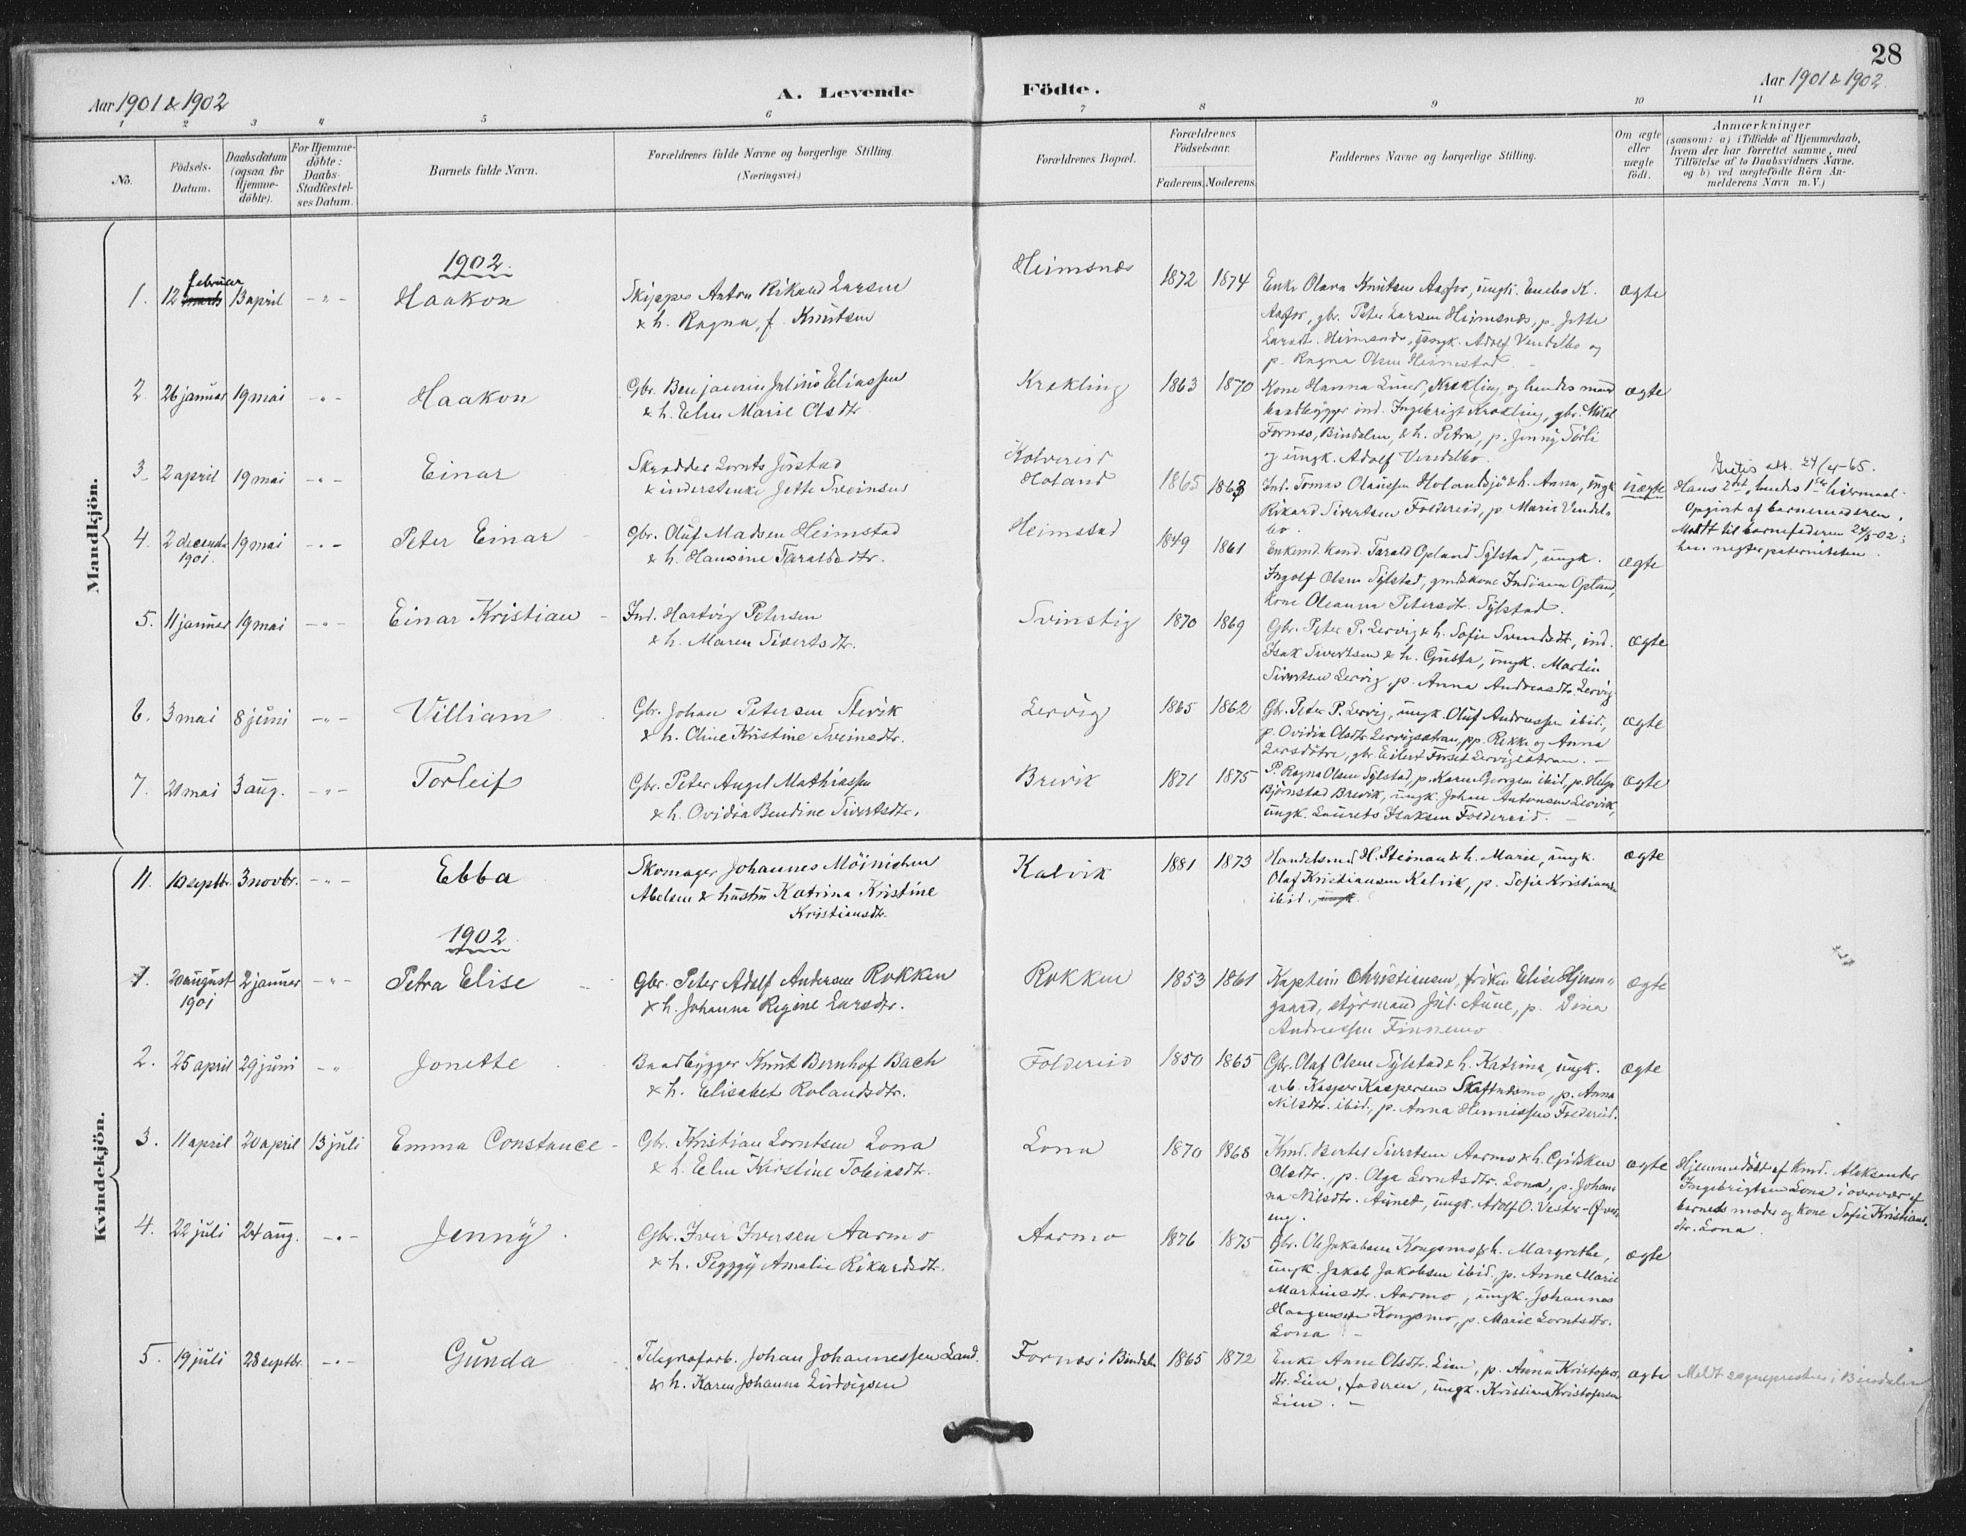 28
Aar 1901 & 1902
A. Levende Födte.
Aar 1901 & 1902
1 2 3 4 5 6 7 8 9 10 11
No.
Födsels-Datum.
Daabsdatum (ogsaa for Hjemme-döbte).
For Hjemme-döbte: Daabs-Stadfæstel-ses Datum.
Barnets fulde Navn.
Forældrenes fulde Navne og borgerlige Stilling.
(Næringsvei.)
Forældrenes Bopæl.
Forældrenes Födselsaar.
Faderens. Moderens.
Faddernes Navne og borgerlige Stilling.
Om ægte eller uægte födt.
Anmærkninger
(saasom: a) i Tilfælde af Hjemmedaab,
hvem der har forrettet samme, med
Tilföielse af to Daabsvidners Navne,
og b) ved uægtefödte Börn An-
melderens Navn m. V.)
Mandkjön.
1902.
1. 12 februar marts 13 april - " - Haakon
Skipper Anton Rikard Larsen
& h. Ragna, f. Knutsen
Heimsnæs 1872 1874
Enke Olava Knutsen Aasfor, ungk. Enebo K.
Aasfor, gbr. Peter Larsen Heimsnæs, p. Jette
Larsen Heimsnæs, ungk. Adolf Vendelbo og
p. Ragna Olsen Heimstad.
ægte
2. 26 januar 19 mai - " - Haakon
Gbr. Benjamin Julius Eliassen
& h. Elen Marie Olsdtr.
Krækling 1863 1870
Kone Hanna Lund, Krækling, og hendes mand
baadbygger ind. Ingebrigt Krækling, gbr. Mikal
Fornes, Bindalen, & h. Petra, p. Jenny Sørli
og ungk. Adolf Vendelbo.
ægte
3. 2 april 19 mai - " - Einar
Skrædder Lornts Jørstad
& inderstenke Jette Sveinsen
Kolvereid
Høland 1865 1863
Ind. Tomas Olaussen Hølandsjø & h. Anna, ungk.
Rikard Sivertsen Foldereid, p. Marie Vendel-
bo.
uægte
Gjetis att. 24/4-65.
Hans 2det, hendes 1ste leiermaal.
Opgivet af barnemoderen.
Meldt til barnefaderen 24/5-02;
han negter paterniteten.
4. 2 december 1901. 19 mai - " - Peter Einar
Gbr. Oluf Madsen Heimstad
& h. Hansine Taraldsdtr.
Heimstad 1849 1861
Enkemd. kand. Tarald Opland Sylstad, ungk.
Ingolf Olsen Sylstad, gmdskone Indiana Opland,
kone Oleanna Petersdtr. Sylstad.
ægte
5. 11 januar 19 mai - " - Einar Kristian
Ind. Hartvig Petersen
& h. Maren Sivertsdtr.
Svinstig 1870 1869
Gbr. Peter P. Lervig & h. Sofie Svendsdtr., ind.
Isak Sivertsen & h. Gusta, ungk. Martin
Sivertsen Lervig, p. Anna Andreasdtr. Lervig
ægte
6. 3 mai 8 juni - " - Villiam
Gbr. Johan Petersen Stevik
& h. Oline Kristine Sveinsdtr.
Lervig 1865 1862
Gbr. Peter P. Lervig, ungk. Oluf Andreassen ibid.,
p. Ovidia Olsdtr. Lervigsstran, pp. Rikke og Anna
Larsdøtre, gbr. Eilert Forset Lervigsstran.
ægte
7. 21 mai 3 aug. - " - Torleif
Gbr. Peter Angel Mathiassen
& h. Ovidia Bendine Sivertsdtr.
Brevik 1871 1875
P. Ragna Olsen Sylstad, p. Karen Georgsen ibid., p. Helga
Bjørnstad Brevik, ungk. Johan Antonsen Lervik,
ungk. Laurets Isaksen Foldereid.
ægte
Kvindekjön.
11. 10 septbr. 3 novbr. - " - Ebba
Skomager Johannes Møinichen
Abelsen & hustru Katrina Kristine
Kristiansdtr.
Kalvik 1881 1873
Handelsmd. H. Steinan & h. Marie, ungk.
Olaf Kristiansen Kalvik, p. Sofie Kristiansen
ibid., ungk.
ægte
1902.
1. 20 august 1901 2 januar - " - Petra Elise
Gbr. Peter Adolf Andersen Rokken
& h. Johanna Regine Larsdtr.
Rokken 1853 1861
Kaptein Christiansen, frøken Elise Hjersn-
gaard, styrmand Jul. Aune, p. Dina
Andreassen Finnemo
ægte
2. 25 april 29 juni - " Jonette
Baadbygger Knut Bernhof Bach
& h. Elisabet Rolandsdtr.
Foldereid 1850 1865
Gbr. Olaf Olsen Sylstad & h. Katrina, ungk.
arb. Kasper Kaspersen Skaftnesmo, p. Anna
Nilsdtr. ibid., p. Anna Henniksen Foldereid.
ægte
3. 11 april 20 april 13 juli Emma Constance
Gbr. Kristian Lorntsen Lona
& h. Elen Kirstine Tobiasdtr.
Lona 1870 1868
Kmd. Bertel Sivertsen Aarmo & h. Gjidsken
Olsdtr., p. Olga Lorntsdtr. Lona, p. Johan-
na Nilsdtr. Aunet, ungk. Adolf O. Vester-Øver-
eng.
ægte
Hjemmedøbt af Kmd. Aleksander
Ingebrigtsen Lona i overvær af
barnets moder og kone Sofie Kristians-
dtr. Lona.
4. 22 juli 24 aug. - " - Jenny
Gbr. Iver Iversen Aarmo
& h. Peggy Amalie Rikardsdtr.
Aarmo 1876 1875
Gbr. Ole Jakobsen Kongsmo & h. Margrethe,
ungk. Jakob Jakobsen ibid., p. Anne Marie
Martinsdtr. Aarmo, ungk. Johannes
Haagensen Kongsmo, p. Marie Lorntsdtr.
Lona
ægte
5. 19 juli 28 septbr. - " - Gunda
Telegrafarb. Johan Johannessen Land
& h. Karen Johanna Ludvigsen
Fornæs i Bindalen 1865 1872
Enke Anne Olsdtr. Lien, p. Anna Kristofers-
dtr. Lien, faderen, ungk. Kristian Kristofersen
Lien.
ægte
Meldt sognepresten i Bindalen